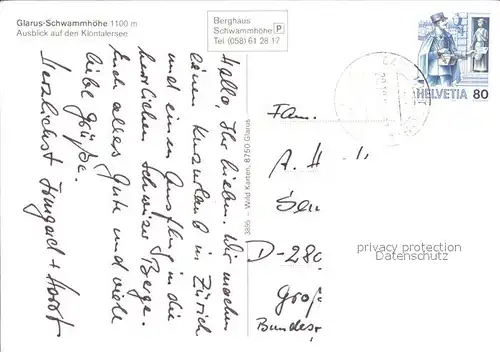 Glarus-Schwammhöhe 1100 m
Ausblick auf den Klöntalersee
Berghaus
Schwammhöhe P
Tel (058) 61 28 17
HELVETIA 80
Hallo, Ihr Lieben. Wir machen
einen Kurzurlaub in Zürich
und einen Ausflug in die
herrlichen Schweizer Berge.
Euch alles Gute und viele
liebe Grüße.
Herzlichst Irmgard + Horst
3895 – Wild Karten, 8750 Glarus
Fam.
A. H
Sen
D-280
Groß
Bundesr
privacy protection
Datenschutz